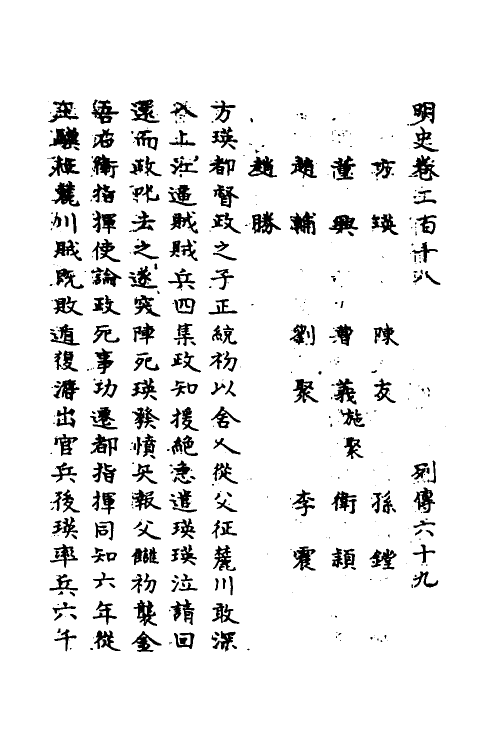 明史卷二百十八 列傳六十九
方瑛 陳友 孫鏜
董興 曹義 施聚 衛頴
趙輔 劉聚 李震
趙勝
方瑛都督政之子正統初以舍人從父征麓川敢深
入上江逼賊賊兵四集政知援絕急遣瑛瑛泣請回
還而政叱去之遂突陣死瑛發憤矢報父讎初襲金
吾右衛指揮使論政死事功遷都指揮同知六年從
王驥征麓川賊既敗遁復潛出官兵後瑛率兵六千